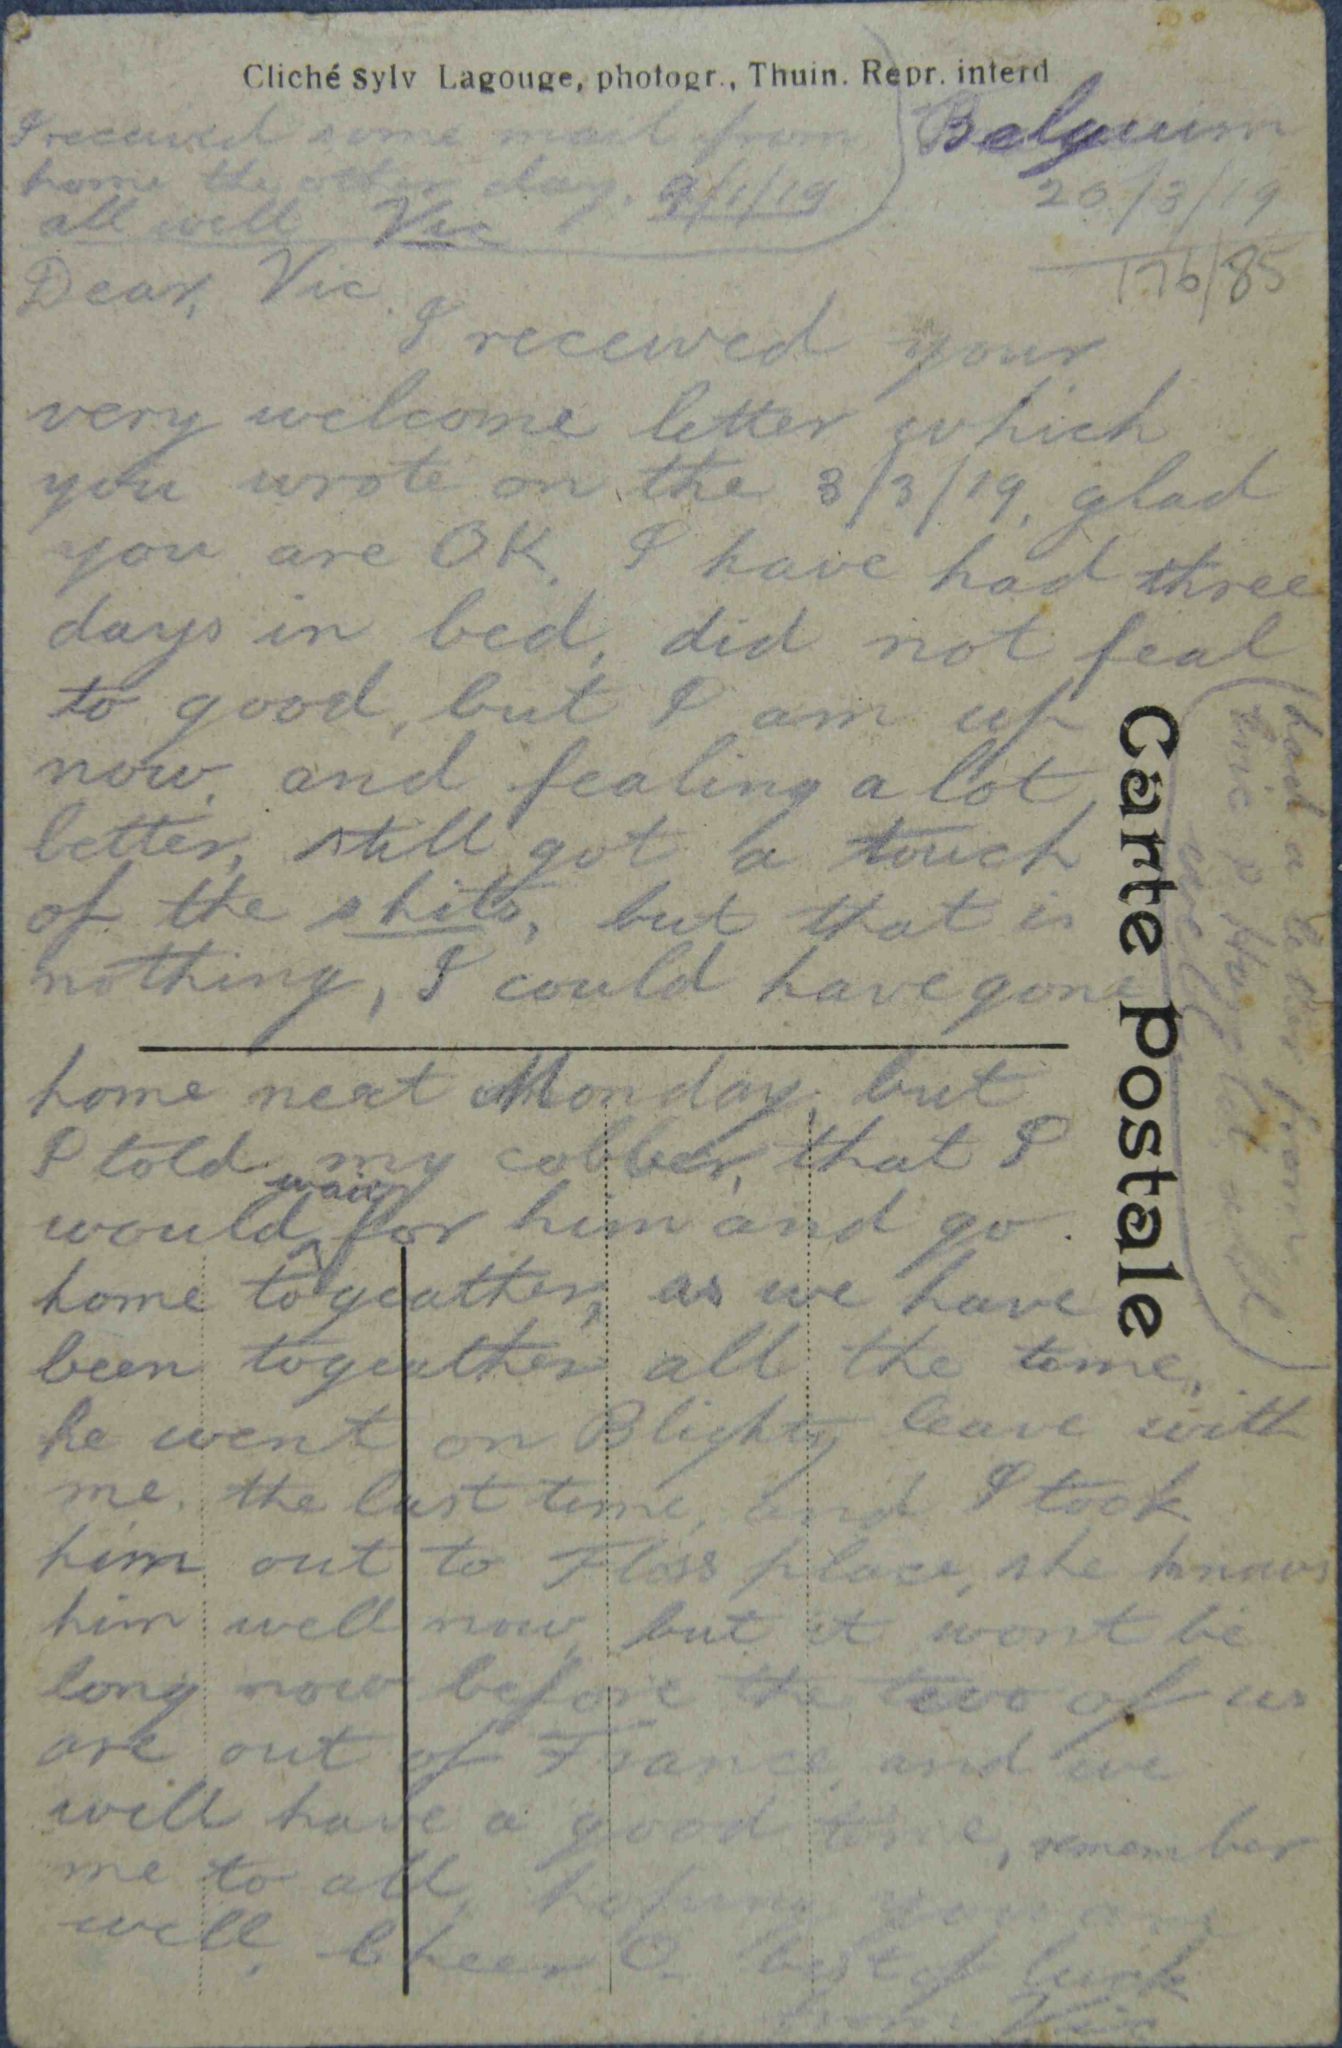 Cliché Sylv Lagouge, photogr., Thuin. Repr. interd
I received some mail from
home the other day. 9/1/19
all well Vic
Belgium
20/3/19
176/85
Dear, Vic.
I received your
very welcome letter which
you wrote on the 3/3/19, glad
you are OK, I have had three
days in bed, did not feal
to good, but I am up
now, and fealing a lot
better, still got a touch
of the shits, but that is
nothing, I could have gone
home next Monday, but
I told my cobber, that I
would wait for him and go
home togeather, as we have
been togeather all the time,
he went on Blighty leave with
me, the last time, and I took
him out to Floss place, she knows
him well now, but it wont be
long now before the two of us
are out of France, and we
will have a good time, remember
me to all, hoping you are
well, Cheer O. best of luck
from Vic
Carte postale
had a letter from
well